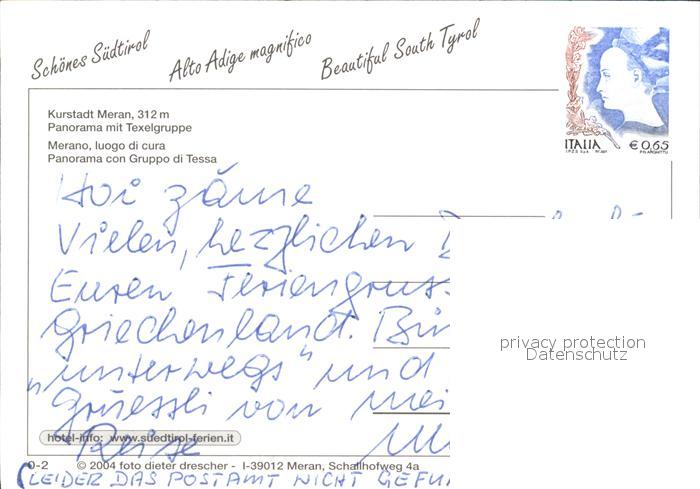 Schönes Südtirol
Alto Adige magnifico
Beautiful South Tyrol
ITALIA € 0,65
Kurstadt Meran, 312 m
Panorama mit Texelgruppe
Merano, luogo di cura
Panorama con Gruppo di Tessa
Hoi zäme
Vielen, herzlichen
Euren Feriengrus
Griechenland. Bin
"unterwegs" und
Grüessli von mei
Reise
hotel-info: www.suedtirol-ferien.it
0-2 © 2004 foto dieter drescher - I-39012 Meran, Schallhofweg 4a
(LEIDER DAS POSTAMT NICHT GEFU
privacy protection
Datenschutz